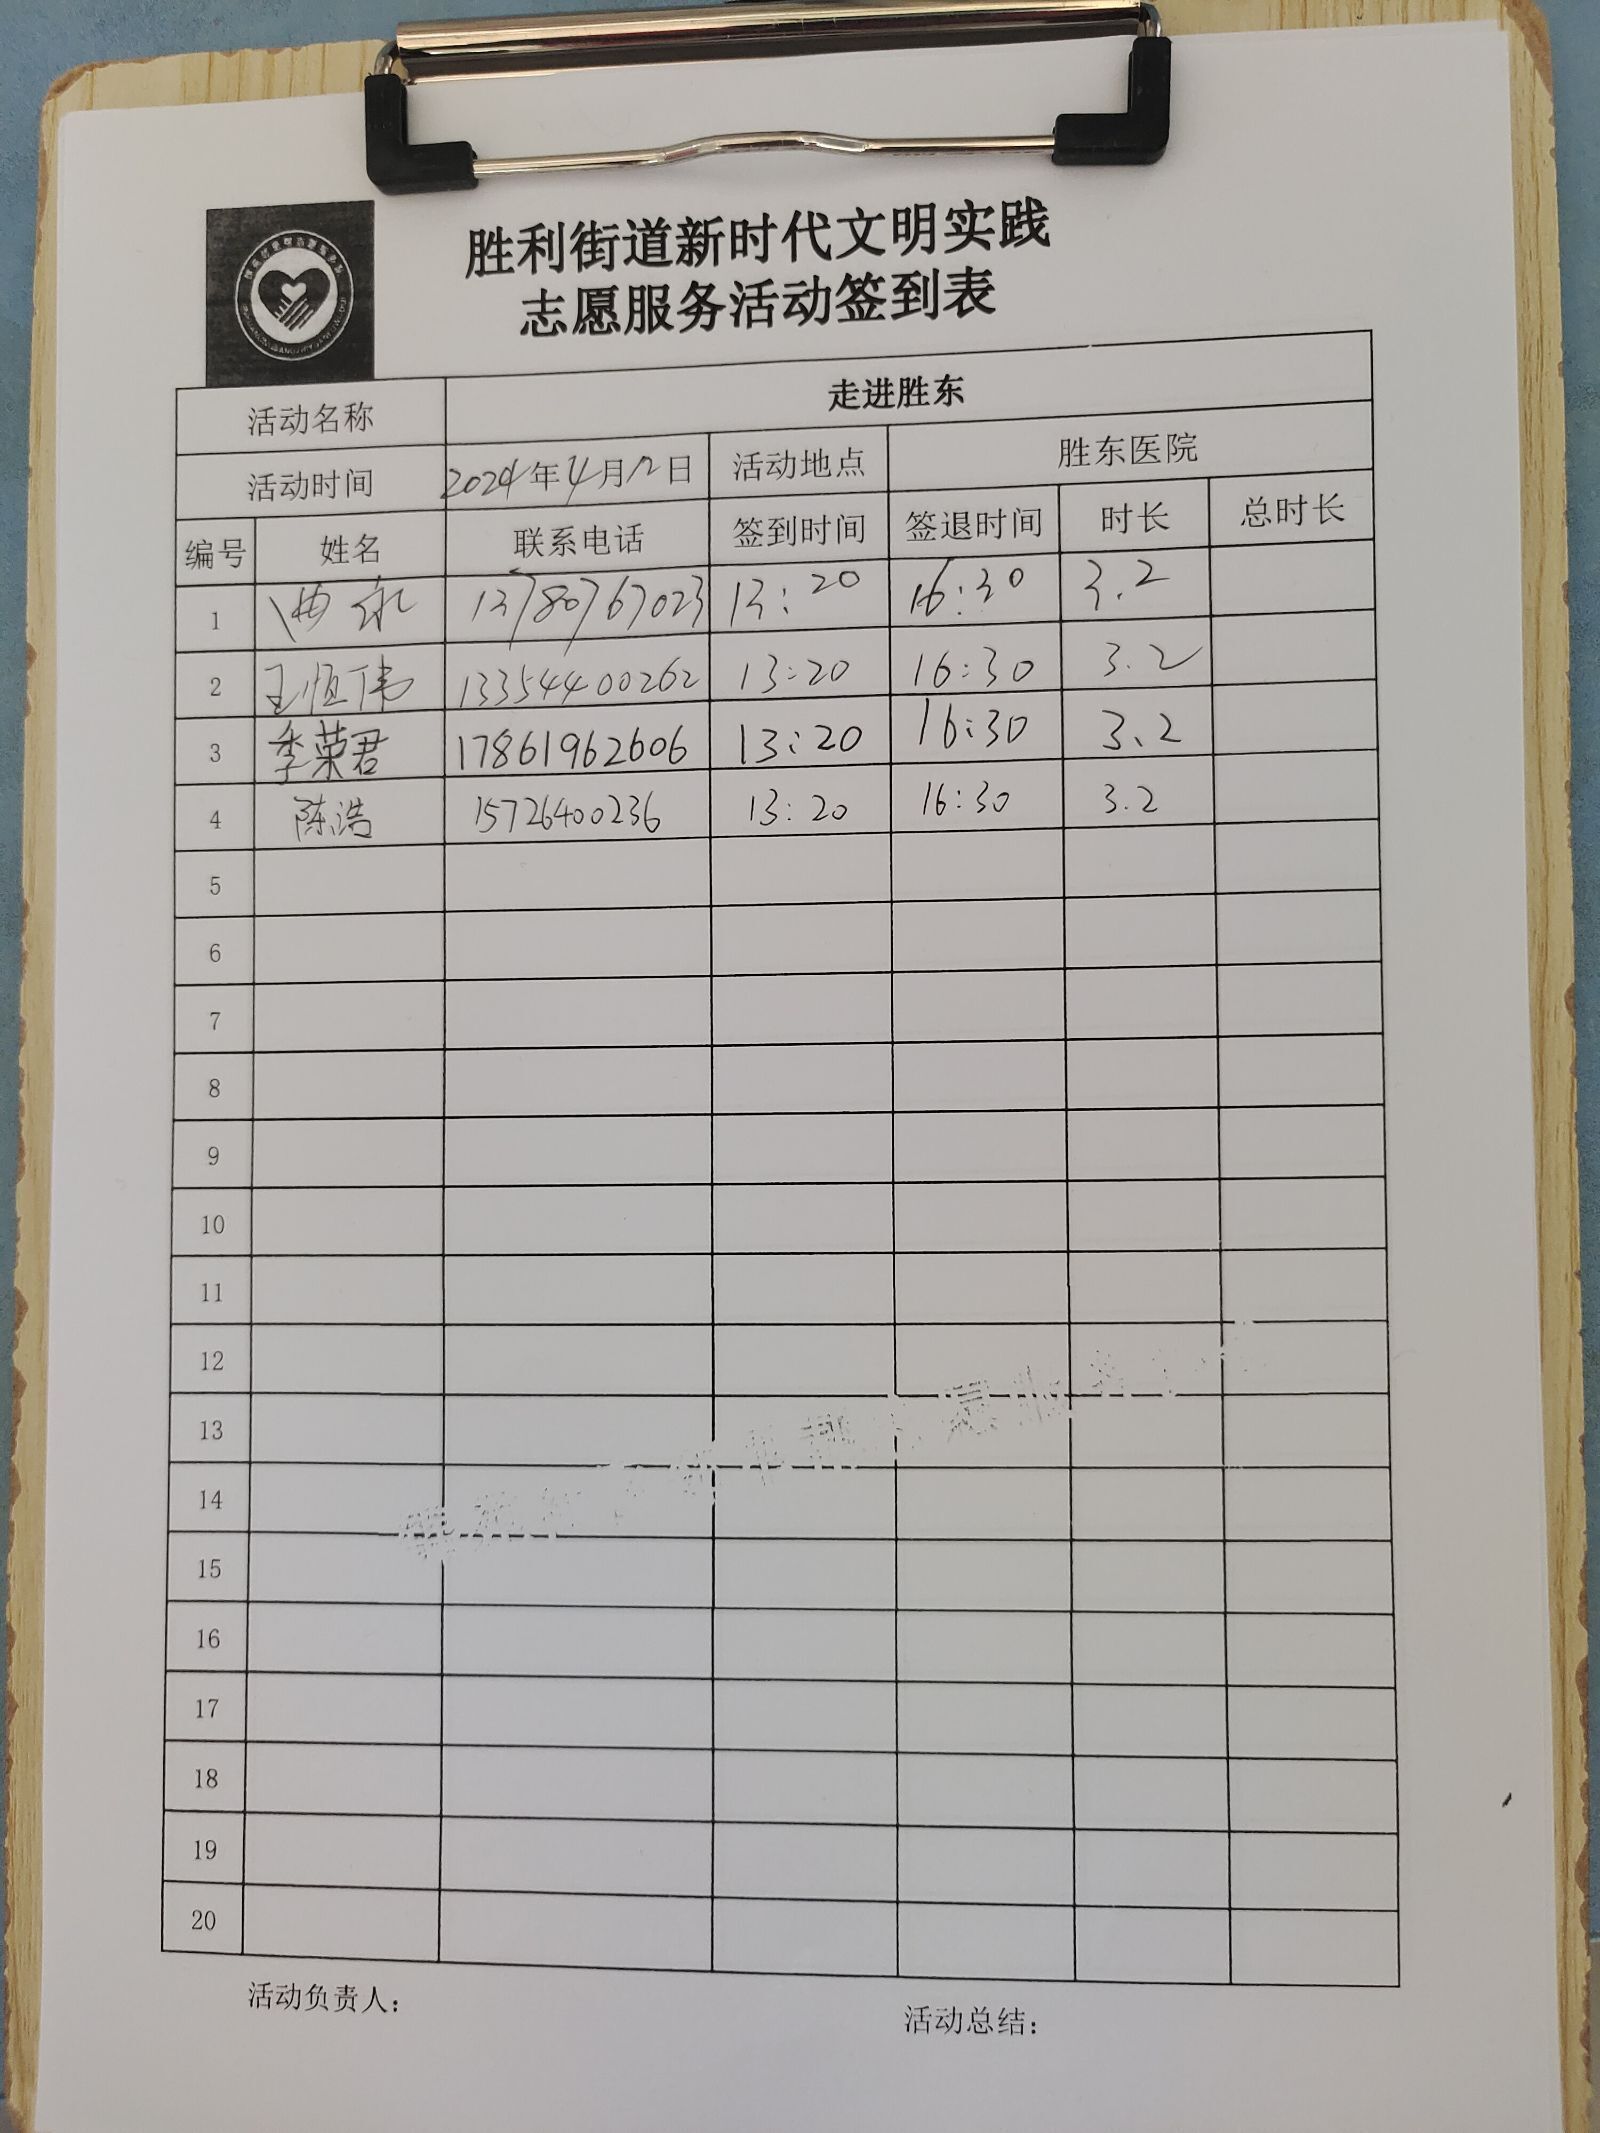 胜利街道新时代文明实践
志愿服务活动签到表
活动名称 走进胜东
活动时间 2024年4月12日 活动地点 胜东医院
编号 姓名 联系电话 签到时间 签退时间 时长 总时长
1 13780767023 13:20 16:30 3.2
2 王恒伟 13354400262 13:20 16:30 3.2
3 季荣君 17861962606 13:20 16:30 3.2
4 陈浩 15726400236 13:20 16:30 3.2
5
6
7
8
9
10
11
12
13
14
15
16
17
18
19
20
活动负责人： 活动总结：